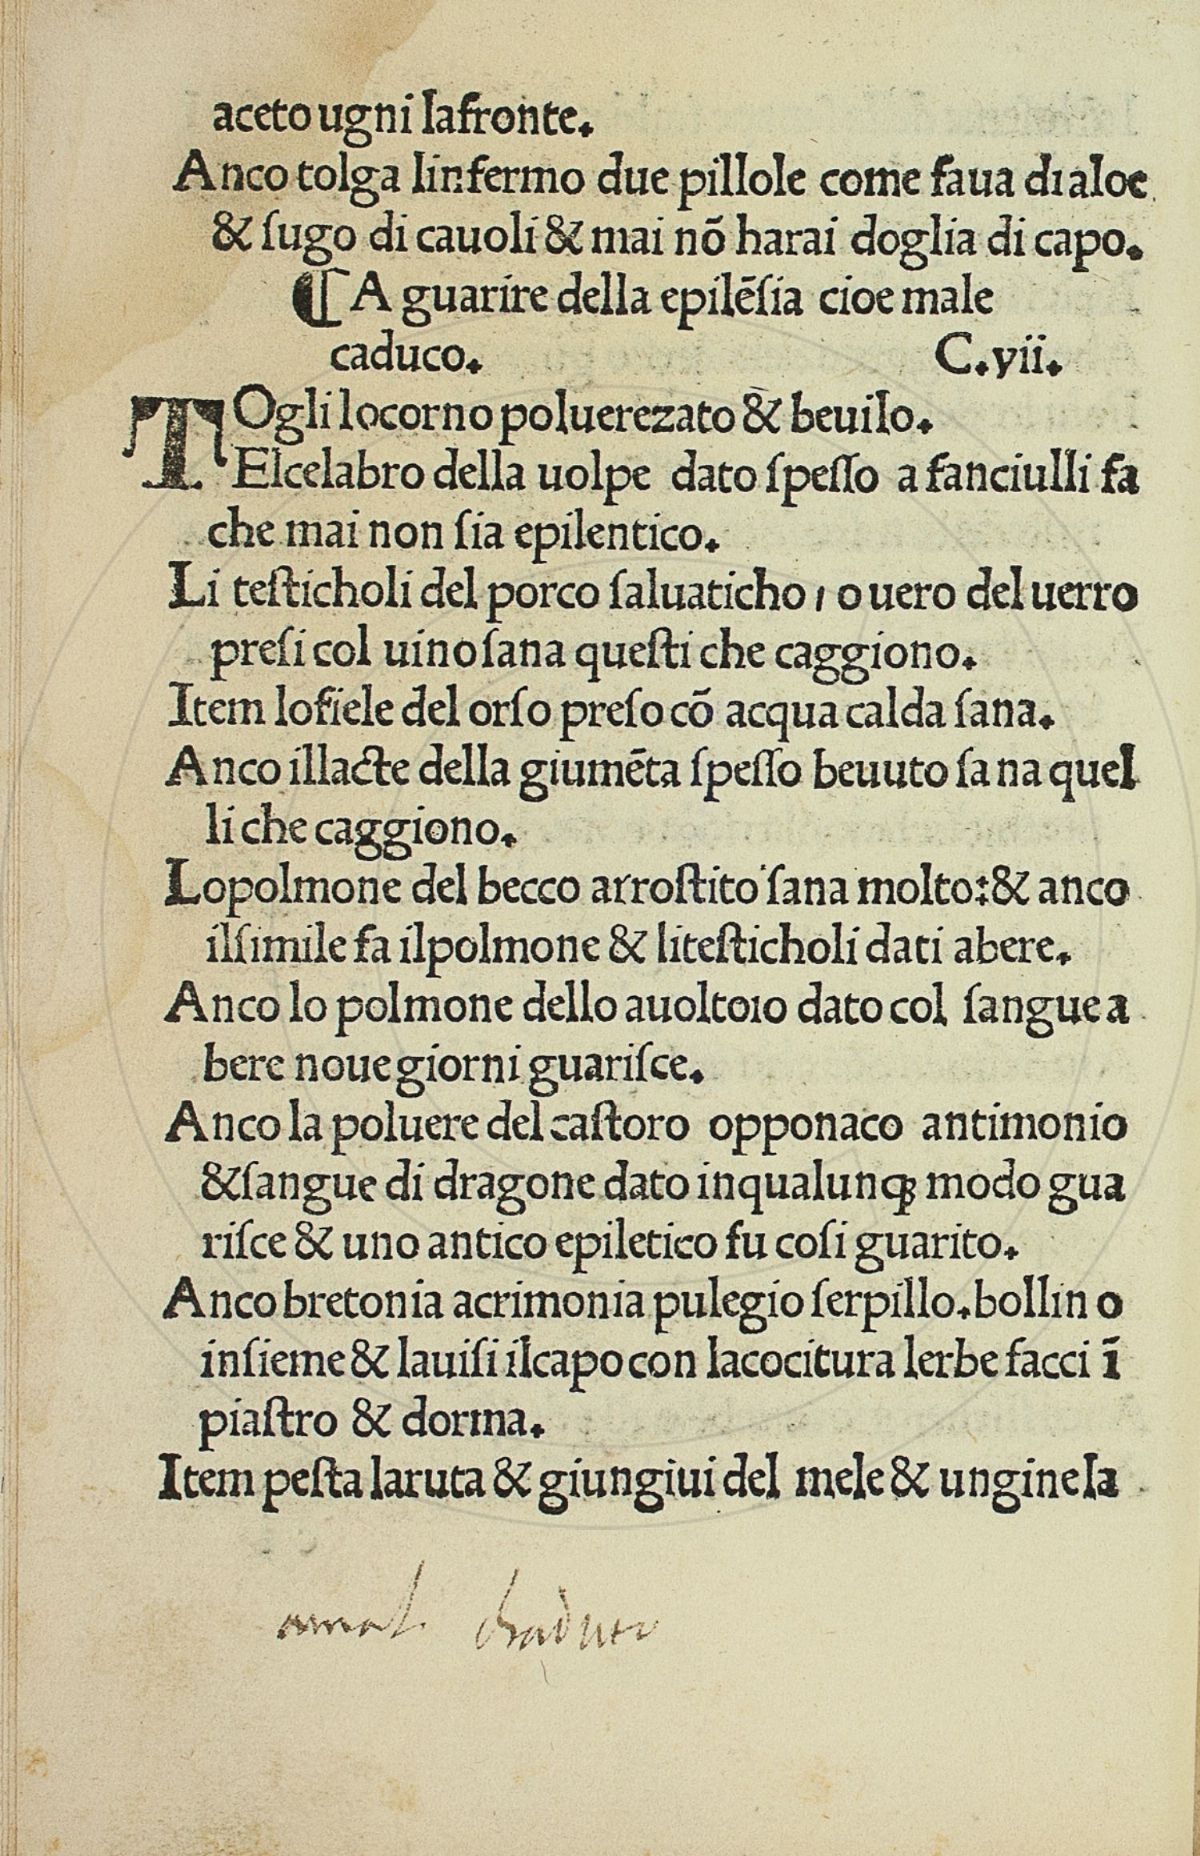 aceto ugni lafronte.
Anco tolga linfermo due pillole come faua di aloe
& ſugo di cauoli & mai nō harai doglia di capo.
¶ A guarire della epilēſia cioe male
caduco. C.vii.
TOgli locorno poluerezato & beuilo.
Elcelabro della uolpe dato ſpeſſo a fanciulli fa
che mai non ſia epilentico.
Li teſticholi del porco ſaluaticho / o uero del uerro
preſi col uino ſana queſti che caggiono.
Item lofiele del orſo preſo cō acqua calda ſana.
Anco illacte della giumēta ſpeſſo beuuto ſana quel
li che caggiono.
Lopolmone del becco arroſtito ſana molto: & anco
ilſimile fa ilpolmone & liteſticholi dati abere.
Anco lo polmone dello auoltoio dato col ſangue a
bere noue giorni guariſce.
Anco la poluere del caſtoro opponaco antimonio
& ſangue di dragone dato inqualunqꝫ modo gua
riſce & uno antico epiletico fu coſi guarito.
Anco bretonia acrimonia pulegio ſerpillo. bollino
inſieme & lauiſi ilcapo con lacocitura lerbe facci ī
piaſtro & dorma.
Item peſta laruta & giungiui del mele & unginela